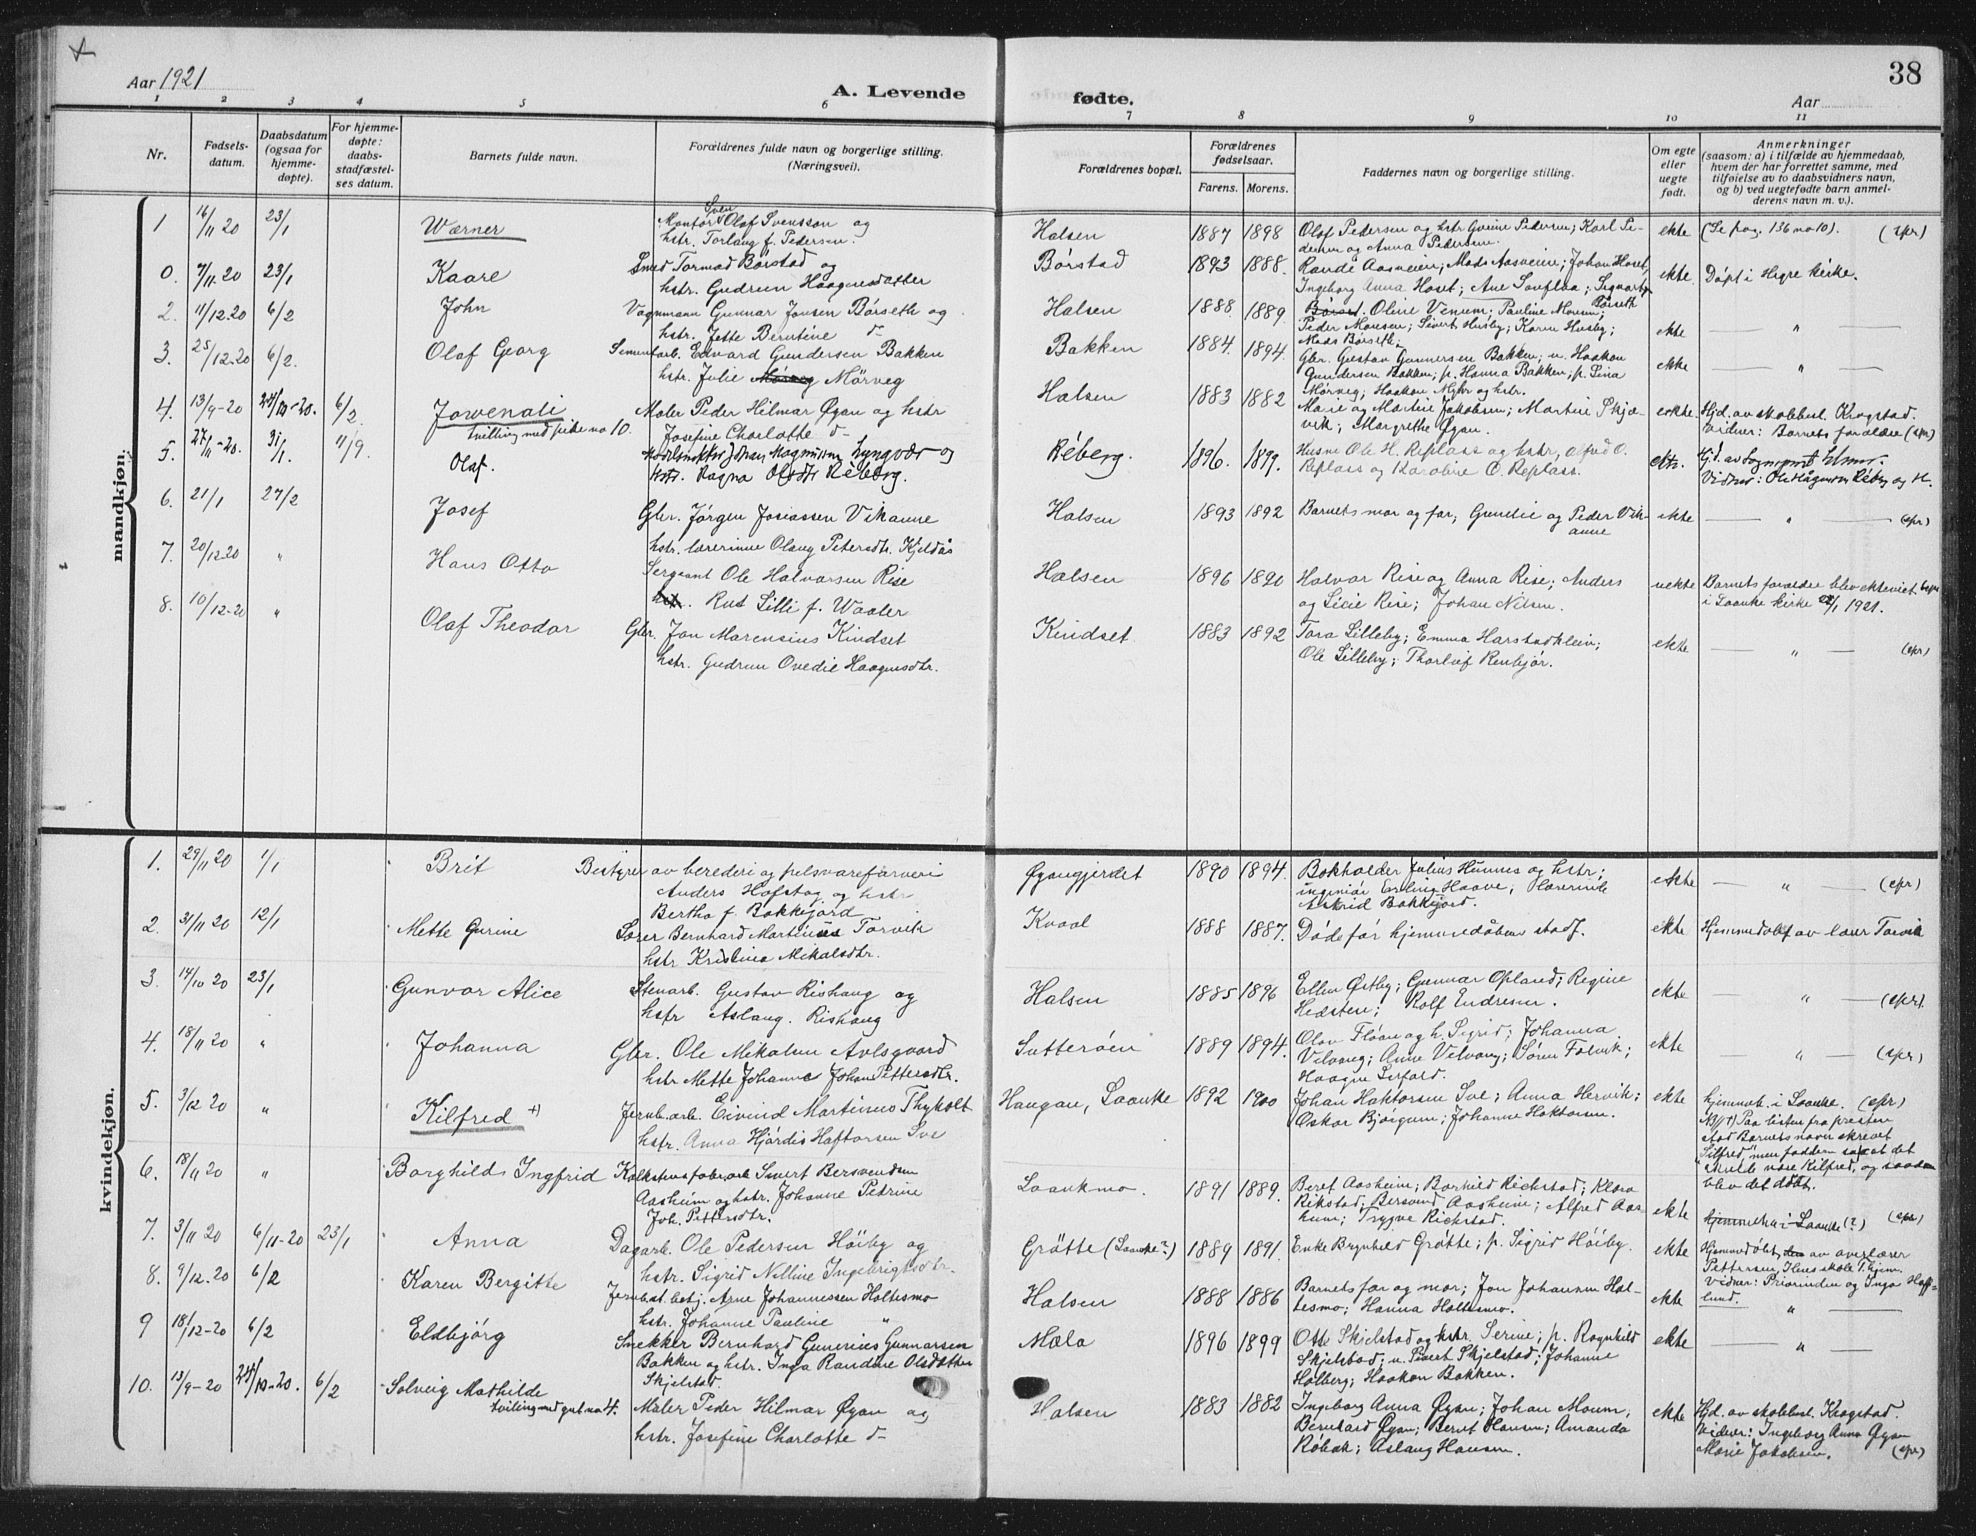 Aar 1921
A. Levende
fødte.
Aar
38
1 2 3 4 5 6 7 8 9 10 11
Nr.
Fødsels-
datum.
Daabsdatum
(ogsaa for
hjemme-
døpte).
For hjemme-
døpte:
daabs-
stadfæstel-
ses datum.
Barnets fulde navn.
Forældrenes fulde navn og borgerlige stilling.
(Næringsvei).
Forældrenes bopæl.
Forældrenes
fødselsaar.
Farens. Morens.
Faddernes navn og borgerlige stilling.
Om egte
eller
uegte
født.
Anmerkninger
(saasom: a) i tilfælde av hjemmedaab,
hvem der har forrettet samme, med
tilføielse av to daabsvidners navn,
og b) ved uegtefødte barn anmel-
derens navn m. v.).
mandkjøn.
1 16/11 20 23/1 Wærner
Sven
Montør Olaf Svensson og
hstr. Torlaug f. Pedersen.
Halsen 1887 1898
Olaf Pedersen og hstr Gurine Pedersen; Karl Pe-
dersen og Anna Pedersen.
ekte (Se pag. 136 no 10). (epr)
0. 7/11.20 23/1 Kaare
Smed Tormod Børstad og
hstr. Gudrun Haagensdatter
Børstad 1893 1888.
Randi Aasveien; Mads Aasveien; Johan Hoset,
Ingeborg Anna Hoset;
ekte Døpt i Hegre kirke.
2. 11/12.20 6/2 John
Vognmann Gunnar Jonsen Børseth og
hstr. Jette Berntine d-
Halsen 1888 1889.
Børseth
Oline Venum; Pauline Moum;
Peder Monsen; Sivert Husby; Karen Husby;
Mads Børseth.
ekte — " —
3. 25/12.20 6/2. Olaf Georg
Sementarb. Edvard Gundersen Bakken
hstr. Julie Mørveg
Bakken 1884. 1894.
Gbr. Gustav Gunnersen Bakken; u. Haakon
Gundersen Bakken; p. Hanna Bakken; p. Lina
Mørveg; Haakon Myhr og hstr.
ekte — " —
4. 13/9-20 24/10-20. 6/2. Jowenali
tvilling med pike no 10.
Maler Peder Hilmar Øyan og hstr
Josefine Charlotte d-
Halsen 1883 1882
Marie og Martin Jakobsen; Martine Skjæ-
vik; Margrethe Øyan.
ekte. Hjd. av skolebest. Krogstad.
Vidner: Barnets forældre (epr)
5. 27/11-20. 31/1. 4/9. Olaf.
Johan Magnussen Lyngodr og
hstr. Ragna Olsdtr Reberg.
Reberg. 1896. 1899.
Husm Ole H. Replass og hstr, Alfred O.
Replass og Karoline O. Replass.
ekte. Hjd. av
Vidner: Ole Hågensen Réberg og H.
6. 21/1 27/2 Josef
Gbr. Jørgen Josiassen Vikanne
hstr. lærerinne Olaug Petersdtr. Kjeldås
Halsen 1893 1892
Barnets mor og far; Gunelie og Peder Vik-
anne
ekte — " — (epr)
7. 20/12.20 " Hans Otto
Sergeant Ole Halvorsen Rise
hstr. Rut Lilli f. Waaler
Halsen 1896 1890
Halvor Rise og Anna Rise; Anders
og Licie Rise; Johan Nilsen.
uekte Barnets forældre blev ekteviet
i Laanke kirke 1921.
8. 10/12-20 " Olaf Theodor
Gbr. Jon Marensius Kindset
hstr. Gudrun Ovedie Haagensdtr.
Kindset 1883 1892
Tora Lilleby; Emma Harstadklein;
Ole Lilleby; Thorleif Renbjør.
ekte — " — (epr)
kvindekjøn.
1. 29/11 20 1/1 Brit
Bestyrer av berederi og pelsvarefarveri
Anders Hofstog og hstr
Bertha f. Bakkejord
Øyangjerdet 1890 1894.
Bokholder Julius Hunnes og hstr;
ingeniør Erling Haave;
Astrid Bakkejord.
ekte — " — (epr)
2. 31/11 20 12/1 Mette Gurine
Lærer Bernhard Martinus Torvik
hstr. Kristina Mikalsdtr.
Kvaal 1888 1887.
Døde før hjemmedåben stadf.
ekte Hjemmedøbt av lærer Torvik
3. 14/10 20 23/1 Gunvor Alice
Stenarb. Gustav Rishaug og
hstr Aslaug. Rishaug
Halsen 1885 1896
Ellen Østby; Gunnar Opland; Regine
Hedsten; Rolf Endresen.
ekte — " — (epr).
4. 18/11 20 " Johanna
Gbr. Ole Mikalsen Avlsgaard
hstr Mette Johanne Johan Pettersdtr.
Sutterøen 1889 1894.
Olav Fløan og h. Sigrid; Johanna
Velvang; Anne Velvang; Søren Folvik;
Haagen Lerfald.
ekte — " — (epr)
5. 3/12 20 " Kilfred +)
Jernb.arb. Eivind Martinus Thyholt
hstr. Anna Hjørdis Haftorsen Sve
Haugan, Laanke 1892 1900
Johan Haktorsen Sve; Anna Hervik;
Oskar Bjørgum; Johanne Haktorsen.
ekte hjemmeh. i Laanke. (epr)
+) Paa listen fra presten
stod Barnets navn skrevet
"Silfred" men faddern sa at det
skulde være Kilfred, og saadan
blev det døbt.
6. 18/11 20 " Borghild Ingfrid
Sivert Bersvendsen
Aasheim og hstr. Johanne Petrine
Joh. Pettersdtr.
Laankmo. 1891 1889.
Beret Aasheim; Borhild Rickstad; Klara
Rikstad; Bersvend Aasheim; Alfred Aas-
heim; Trygve Rickstad.
ekte hjemmeh. i Laanke (?) (epr)
7. 3/11 20 6/11-20 23/1 Anna
Dagarb. Ole Pedersen Høiby og
hstr. Sigrid Nilline Ingebrigtsdtr.
Grøtte (Laanke?) 1889 1891.
Enke Brynhild Grøtte; p. Sigrid Høiby.
ekte Hjemmedøbt av overlærer
Pettersen,
Vidner: og Inga Haff-
lund.
8. 9/12.20 6/2 Karen Bergitte
Jernb.st.betj. Arne Johannessen Holtesmo
hstr. Johanne Pauline "
Halsen 1888 1886
Barnets far og mor; Jon Johannsen Hol-
tesmo; Hanna Holtesmo.
ekte — " —
9 18/12-20 6/2 Eldbjørg
Snekker Bernhard Gunerius Gunnarsen
Bakken og hstr. Inga Randine Olsdatter
Skjelstad.
Mæla 1896 1899
Otto Skjelstad og hstr. Serine; p. Ragnhild
Skjelstad; u. Peret Skjelstad; Johanne
Holberg; Haakon Bakken.
ekte — " —
10. 13/9-20 24/10-20. 6/2 Solveig Mathilde
tvilling med gut no 4.
Maler Peder Hilmar Øyan og
hstr. Josefine Charlotte d-
Halsen 1883 1882
Ingeborg Anna Øyan; Johan Moum;
Bernhard Øyan; Bernt Hansen; Amanda
Robak; Aslaug Hansen.
ekte Hjd. av skolebest. Krogstad.
Vidner: Ingeborg Anna Øyan
Marie Jakobsen. (epr)